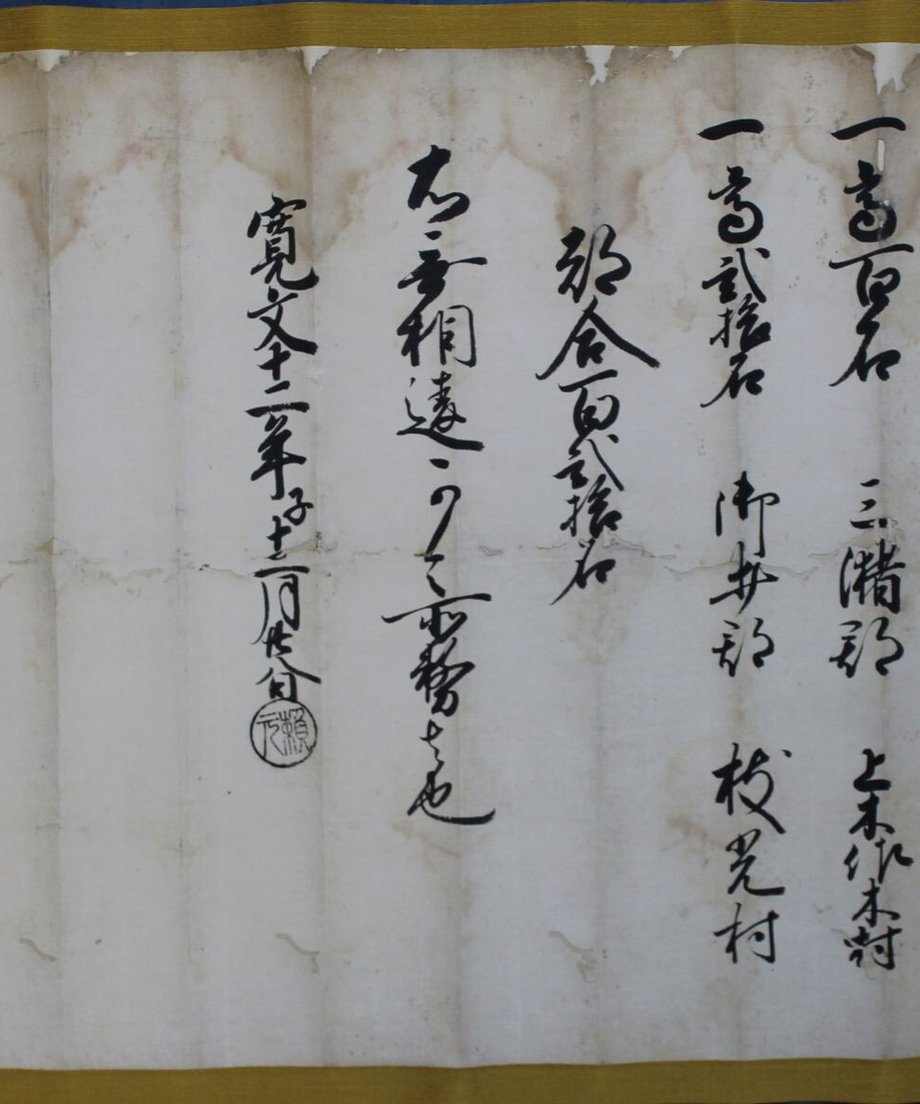 一高百石 三潴郡 上木佐木村
一高弐拾石 御井郡 枝光村
都合百弐拾石
右無相違可令所務者也
寛文十二年子十二月廿八日
頼元